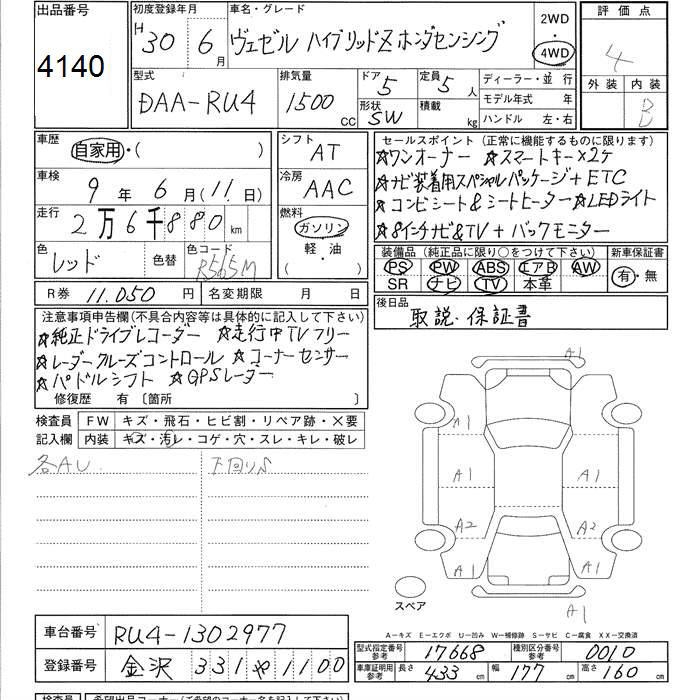 出品番号
4140
初度登録年月
H 30 年 6 月
車名・グレード
ヴェゼル ハイブリッドZ ホンダセンシング
2WD
4WD
評価点
4
外装 内装
B
型式
DAA-RU4
排気量
1500 CC
ドア 5
形状 SW
定員 5 人
積載 kg
ディーラー・並行
モデル年式 年
ハンドル 左・右
車歴
自家用・( )
車検
9 年 6 月 (11 日)
走行
2万6千880 km
色
レッド
色替
色コード
R565M
シフト
AT
冷房
AAC
燃料
ガソリン
軽・油
( )
セールスポイント (正常に機能するものに限ります)
☆ワンオーナー ☆スマートキー×2ケ
☆ナビ装着用スペシャルパッケージ+ETC
☆コンビシート&シートヒーター ☆LEDライト
☆8インチナビ&TV+バックモニター
装備品 (純正品に限り○をつけて下さい)
PS PW ABS エアB AW
SR ナビ TV 本革
新車保証書
有・無
R券 11,050 円
名変期限 月 日
後日品
取説・保証書
注意事項申告欄(不具合内容等は具体的に記入して下さい)
☆純正ドライブレコーダー ☆走行中TVフリー
☆レーダークルーズコントロール ☆コーナーセンサー
☆パドルシフト ☆GPSレーダー
修復歴 有 〔箇所 〕
検査員
記入欄
FW キズ・飛石・ヒビ割・リペア跡・×要
内装 キズ・汚レ・コゲ・穴・スレ・キレ・破レ
各AU
下回りS
A1
A1
A1
A1
A1
A2
A2
A1
A1
A1
スペア
A―キズ E―エクボ U―凹み W―補修跡 S―サビ C―腐食 XX―交換済
車台番号 RU4-1302977
登録番号 金沢 331 や 1100
型式指定番号
参考
17668
種別区分番号
参考
0010
車庫証明用
参考
長さ 433 cm 幅 177 cm 高さ 160 cm
検査員
希望出品コーナー(ご希望のコーナー名を記入して下さい)